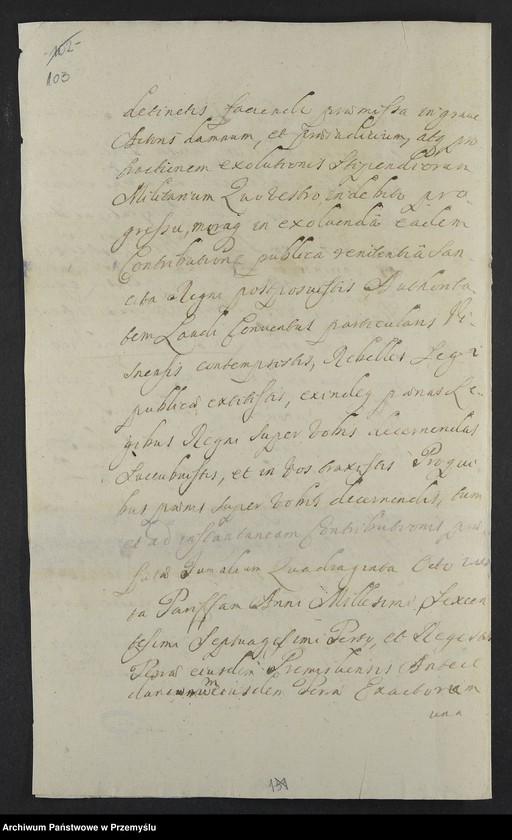 -102-
103
detinetis faciendi præmissa in grave
Actoris damnum, et præiudicium, atq pro
tractionem exolutionis Stipendiorum
Militarium Quo vestro, indebito pro-
gressu, moraq in exolvenda eadem
Contributione publica renitentia San-
cita Regni postposuistis Authorita
tem Laudi Conventus particularis Vi-
snensis contempsistis, Rebelles Legi
publicæ extitistis, exindeq pænas Le-
gibus Regni super vobis decernendas
Succubuistis, et in Vos traxistis Pro qui
bus pænis super vobis decernendis, tum
et ad instantaneam Contributionis præ
fatæ Fumalium Quadraginta Octo
ta Anni Millesimi Sexcen
tesimi Septuagesimi et
Terræ eiusdem Premisliensis
eiusdem Terræ Exactorum
una
131
Archiwum Państwowe w Przemyślu